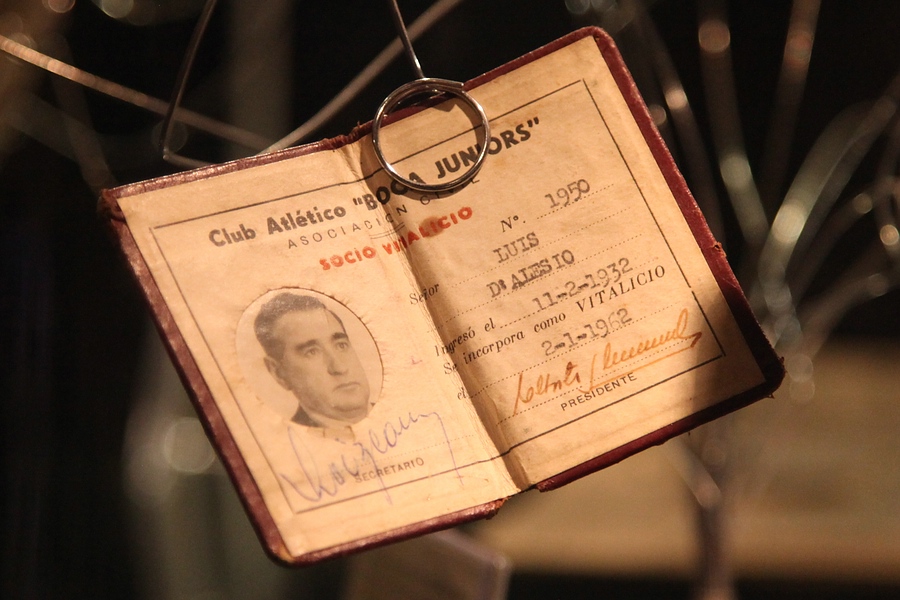 Club Atlético "BOCA JUNIORS"
ASOCIACION CIVIL
SOCIO VITALICIO
SECRETARIO
Nº. 1950
Señor LUIS
D'ALESIO
Ingresó el 11-2-1932
Se incorpora como VITALICIO
el 2-1-1962
PRESIDENTE